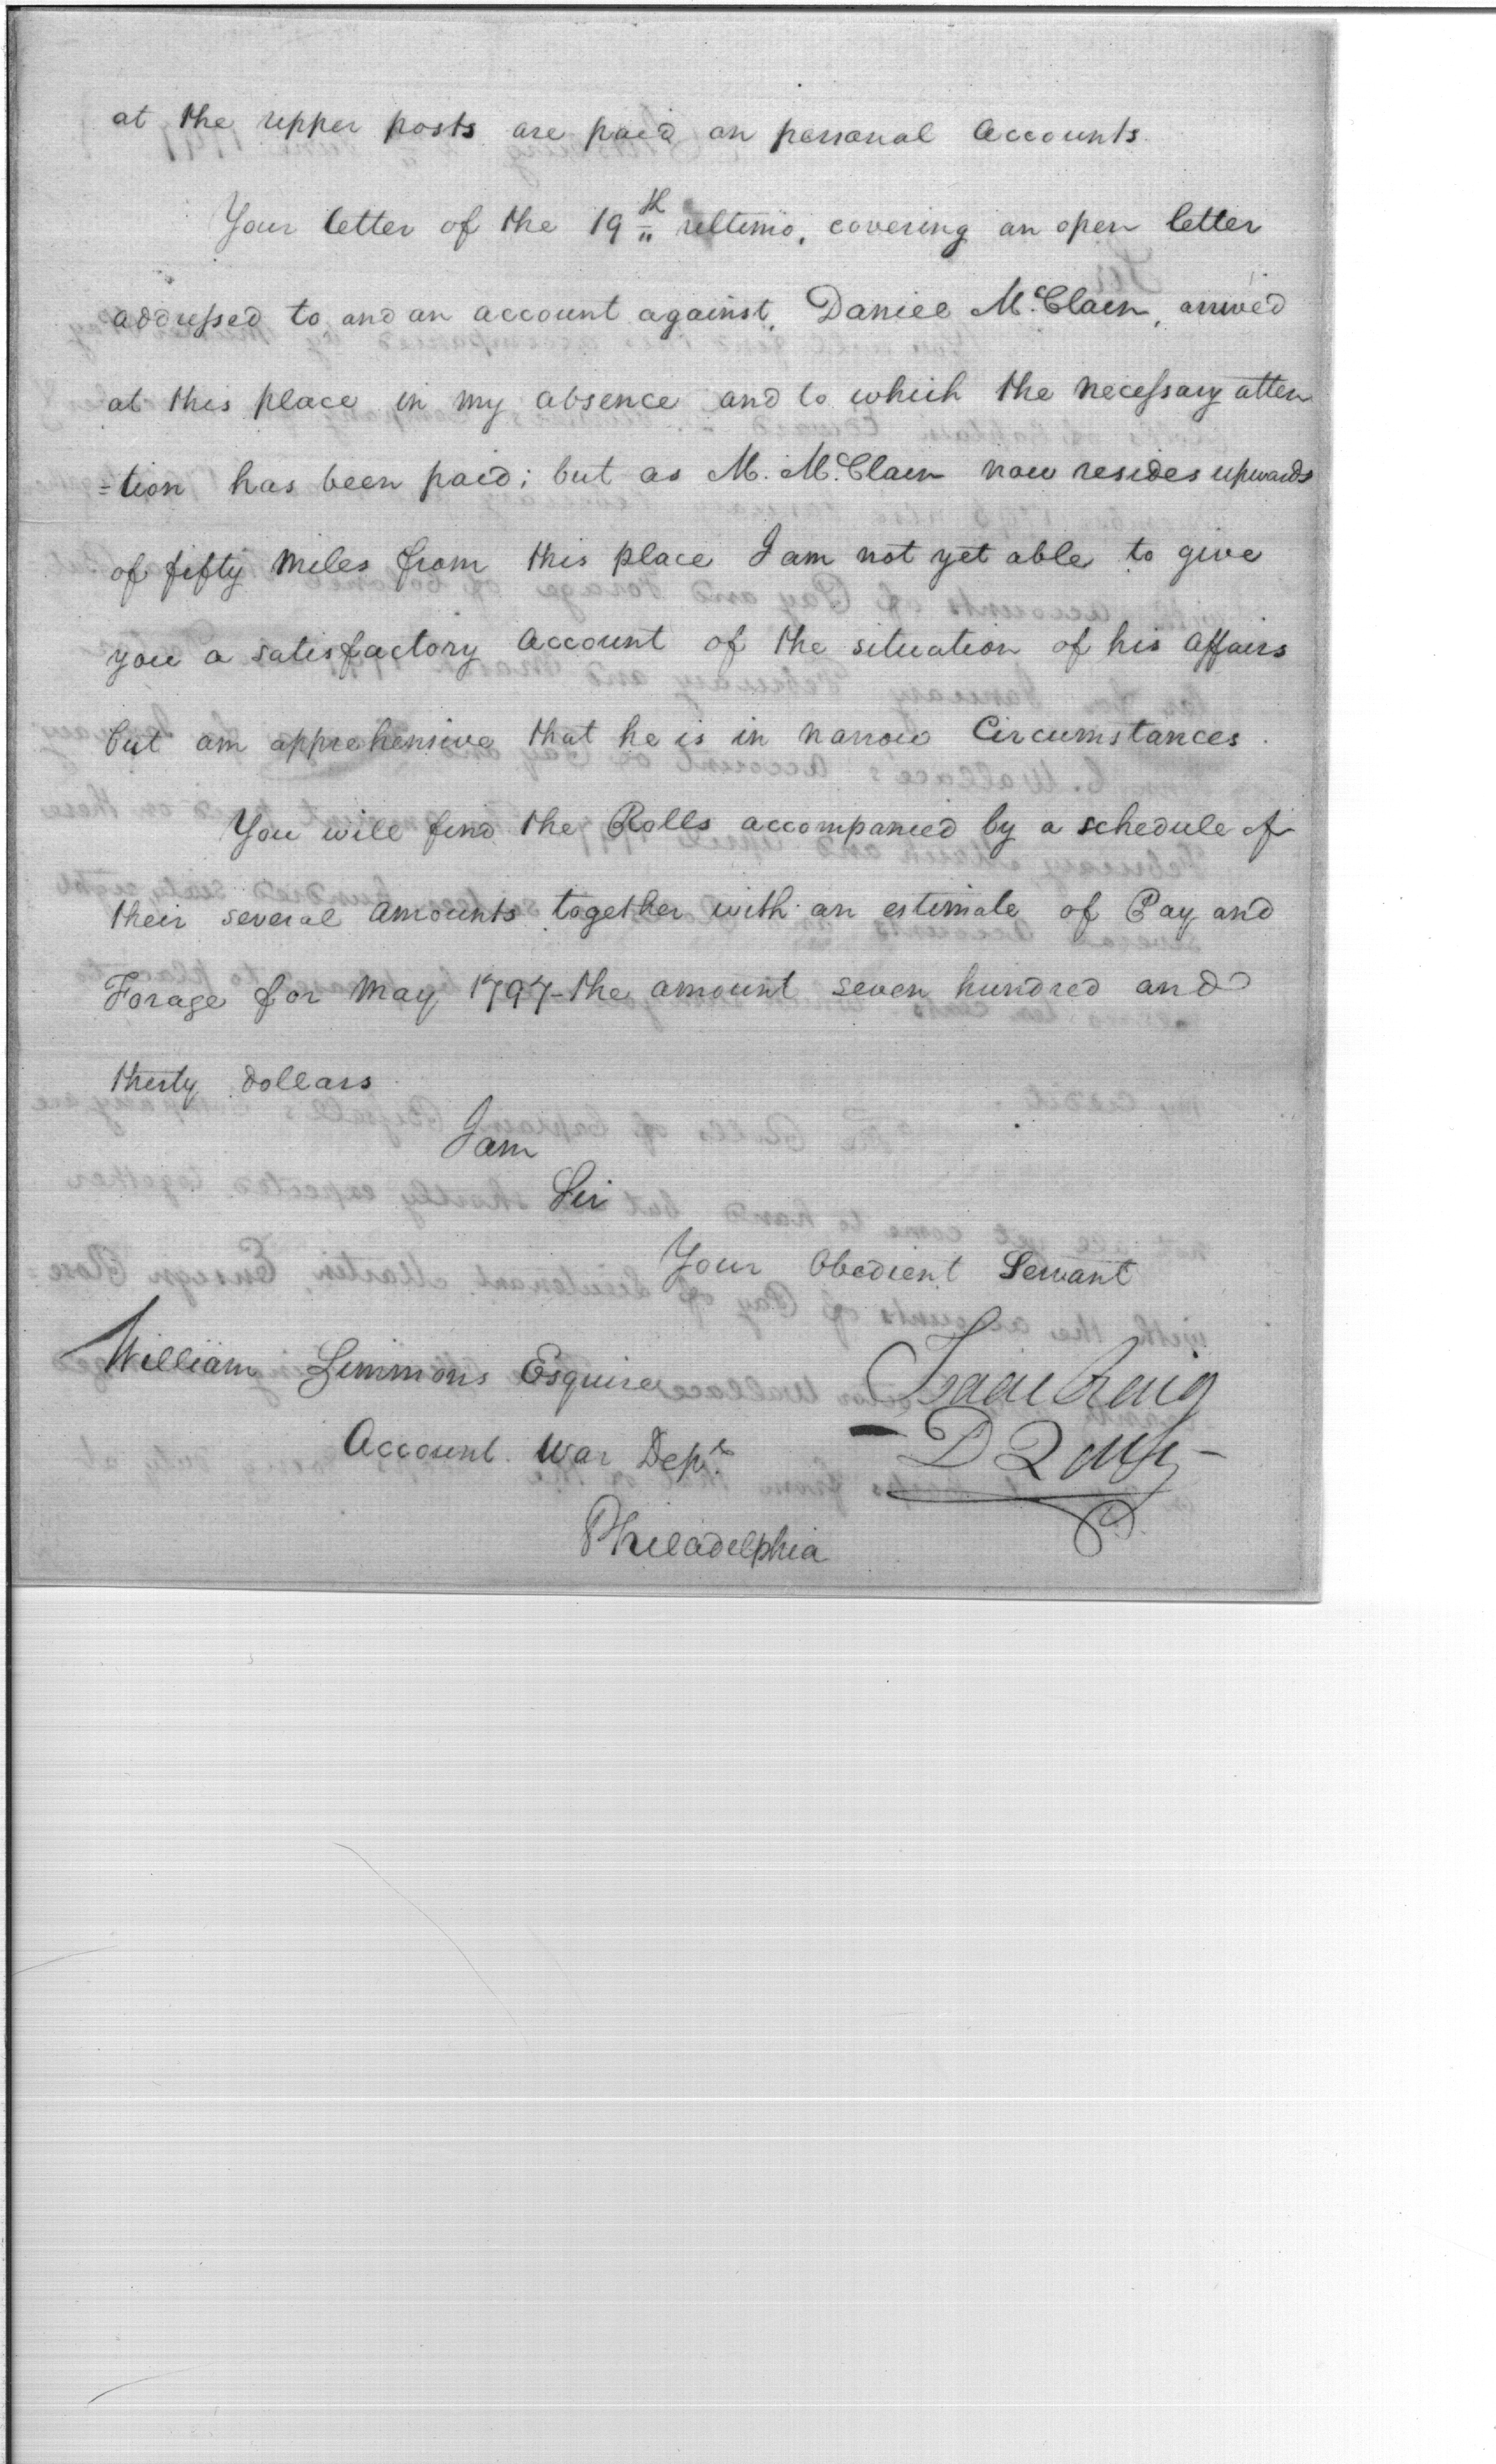 at the upper posts are paid on personal Accounts
Your letter of the 19th ultimo, covering an open letter
addressed to and an account against, Daniel McClain, arrived
at this place in my absence and to which the necessary atten
=tion has been paid; but as M. McClain now resides upwards
of fifty miles from this place I am not yet able to give
you a satisfactory account of the situation of his affairs
but am apprehensive that he is in narrow Circumstances.
You will find the Rolls accompanied by a schedule of
their several amounts together with an estimate of Pay and
Forage for May 1797 - the amount seven hundred and
thirty dollars
I am
Sir
Your Obedient Servant
William Simmons Esquire
Isaac Craig
Account. War Dept.
D Q M G
Philadelphia